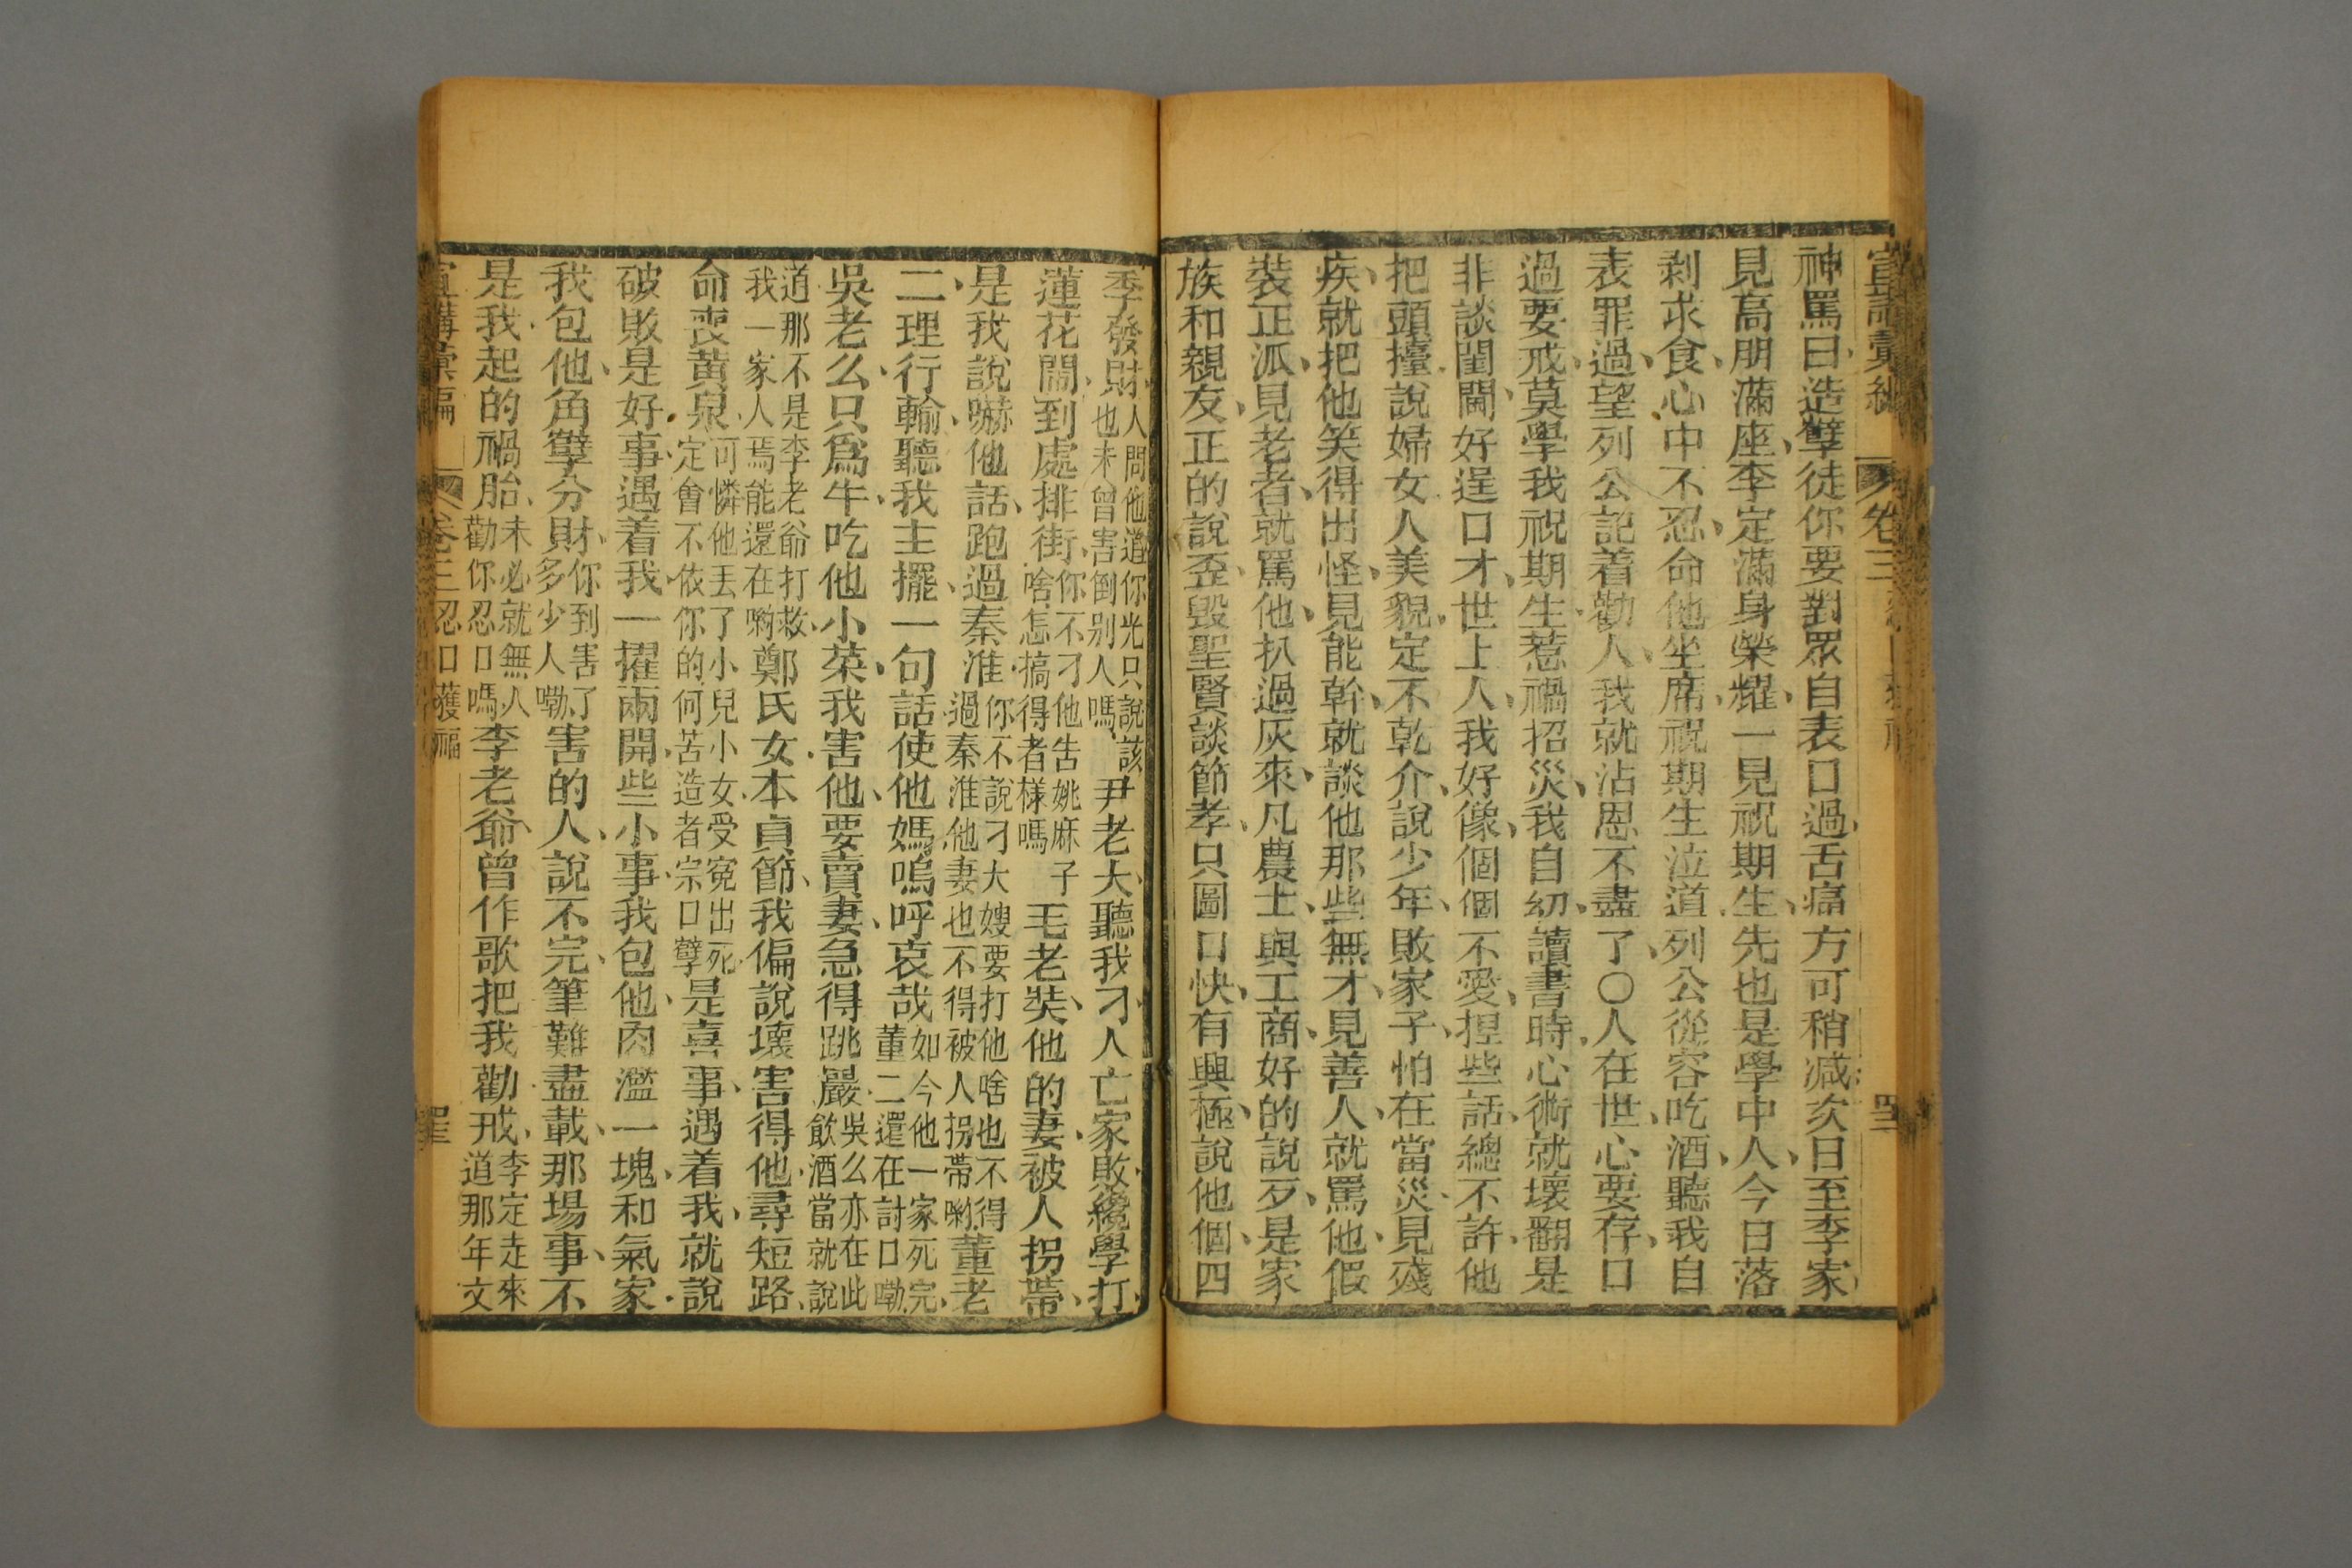 宣講彙編 卷三 忍口獲福
神罵曰造孽徒你要對眾自表口過舌痛方可稍減次日至李家
見高朋滿座李定滿身榮耀一見祝期生先也是學中人今日落
剥求食心中不忍命他坐席祝期生泣道列公從容吃酒聽我自
表罪過望列公記着勸人我就沾恩不盡了○人在世心要存口
過要戒莫學我祝期生惹禍招災我自幼讀書時心術就壞翻是
非談閨閫好逞口才世上人我好像個個不愛捏些話總不許他
把頭擡說婦女人美貌定不乾介說少年敗家子怕在當災見殘
疾就把他笑得出怪見能幹就談他那些無才見善人就罵他假
裝正派見老者就罵他扒過灰來凡農士與工商好的說歹是家
族和親友正的說歪毀聖賢談節孝只圖口快有興極說他個四
季發財人問他道你光只說該也未曾害倒别人嗎尹老大聽我刁人亡家敗纔學打
蓮花鬧到處排街你不刁他告姚麻子啥怎搞得者樣嗎毛老奘他的妻被人拐帶
是我說嚇他話跑過秦淮你不說刁大嫂要打他啥也不得過秦淮他妻也不得被人拐帶喲董老
二理行輸聽我主擺一句話使他媽嗚呼哀哉如今他一家死完董二還在討口嘞
吳老么只爲牛吃他小菜我害他要賣妻急得跳嚴吳么亦在此飲酒當就說
道那不是李老爺打救我一家人焉能還在喲鄭氏女本貞節我偏說壞害得他尋短路
命喪黃泉可憐他丟了小兒小女受寃出死定會不依你的何苦造者宗口孽是喜事遇着我就說
破敗是好事遇着我一擢兩開些小事我包他肉濫一塊和氣家
我包他角孽分財你到害了多少人嘞害的人說不完筆難盡載那場事不
是我起的禍胎未必就無人勸你忍口嗎李老爺曾作歌把我勸戒李定走來道那年文
宣講彙編 卷三忍口獲福